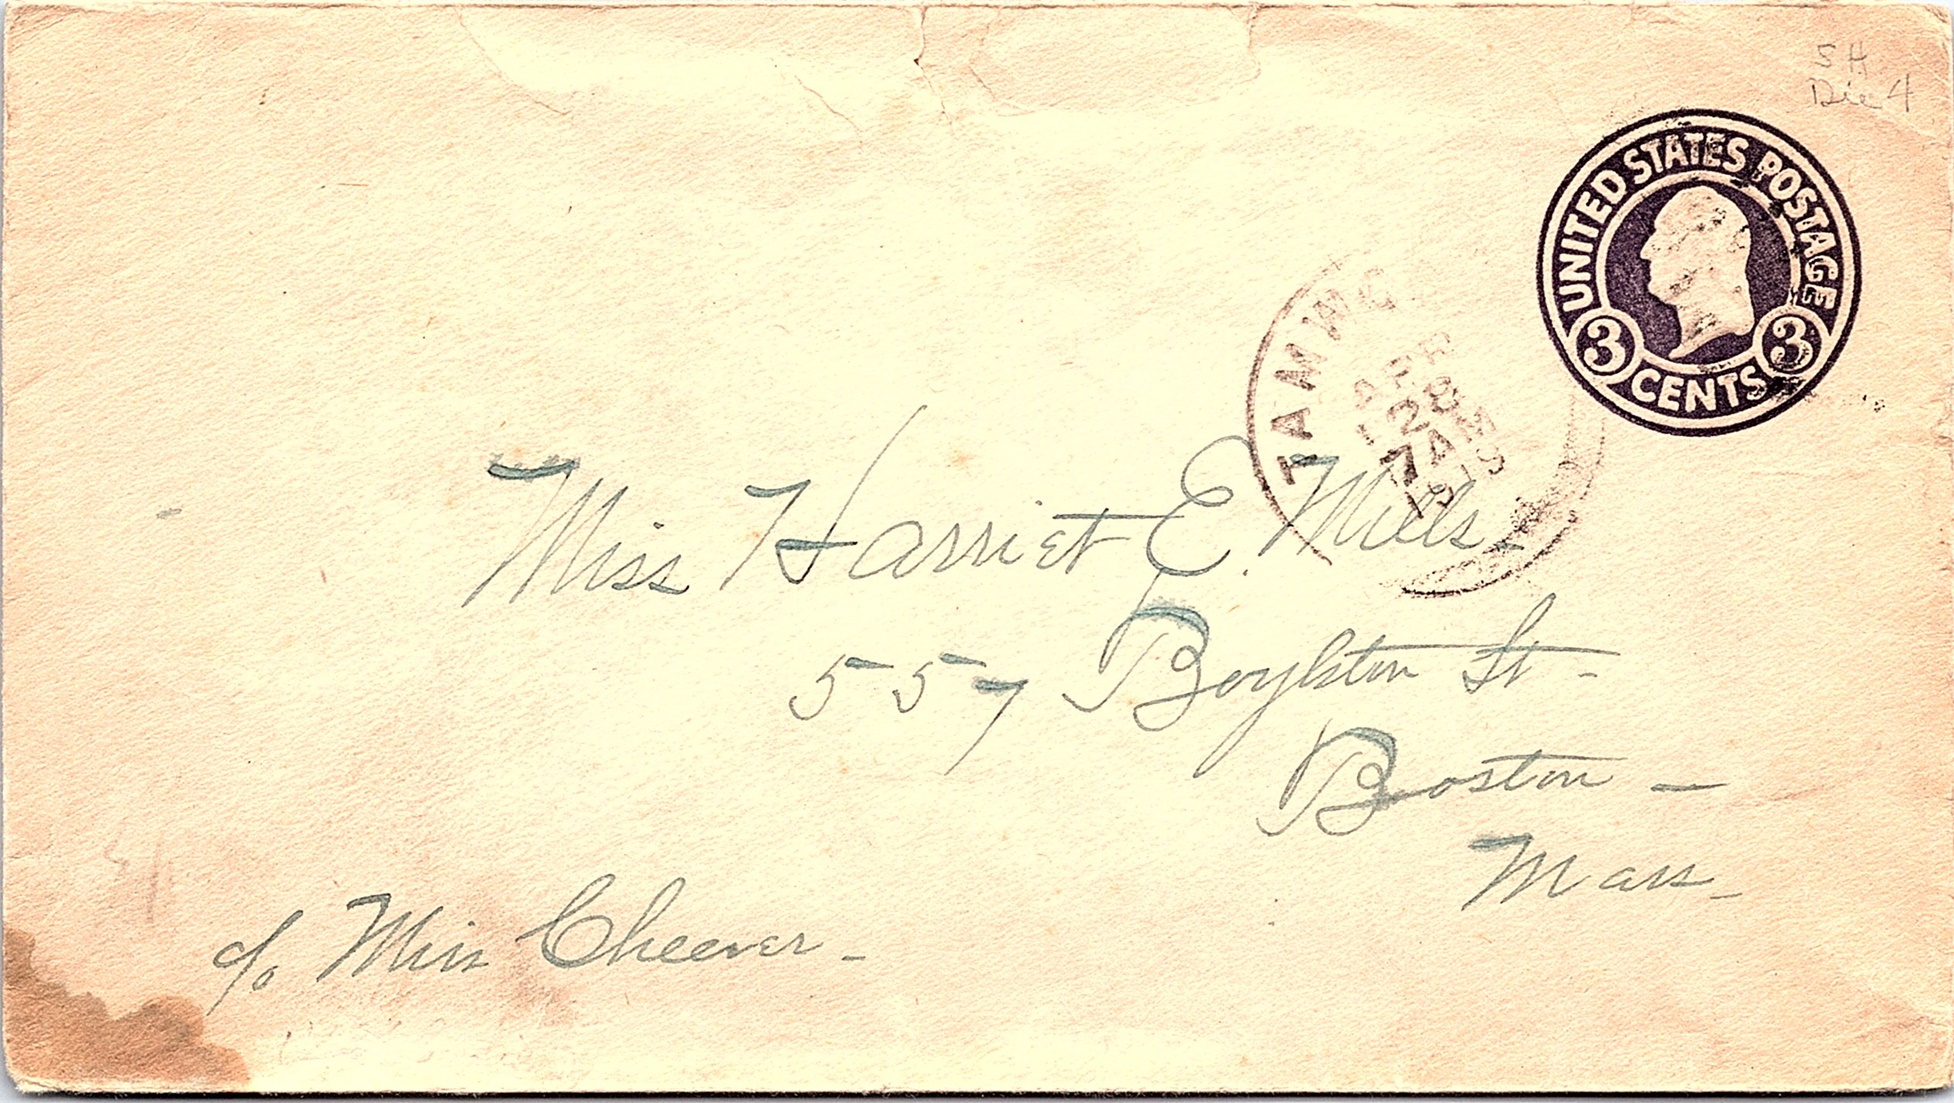 5 H
Die 4
UNITED STATES POSTAGE
3 3
CENTS
TAMWO
FEB
7 AM
Miss Harriet E. Mills -
557 Boylston St -
Boston -
Mass -
c/o Miss Cheever -